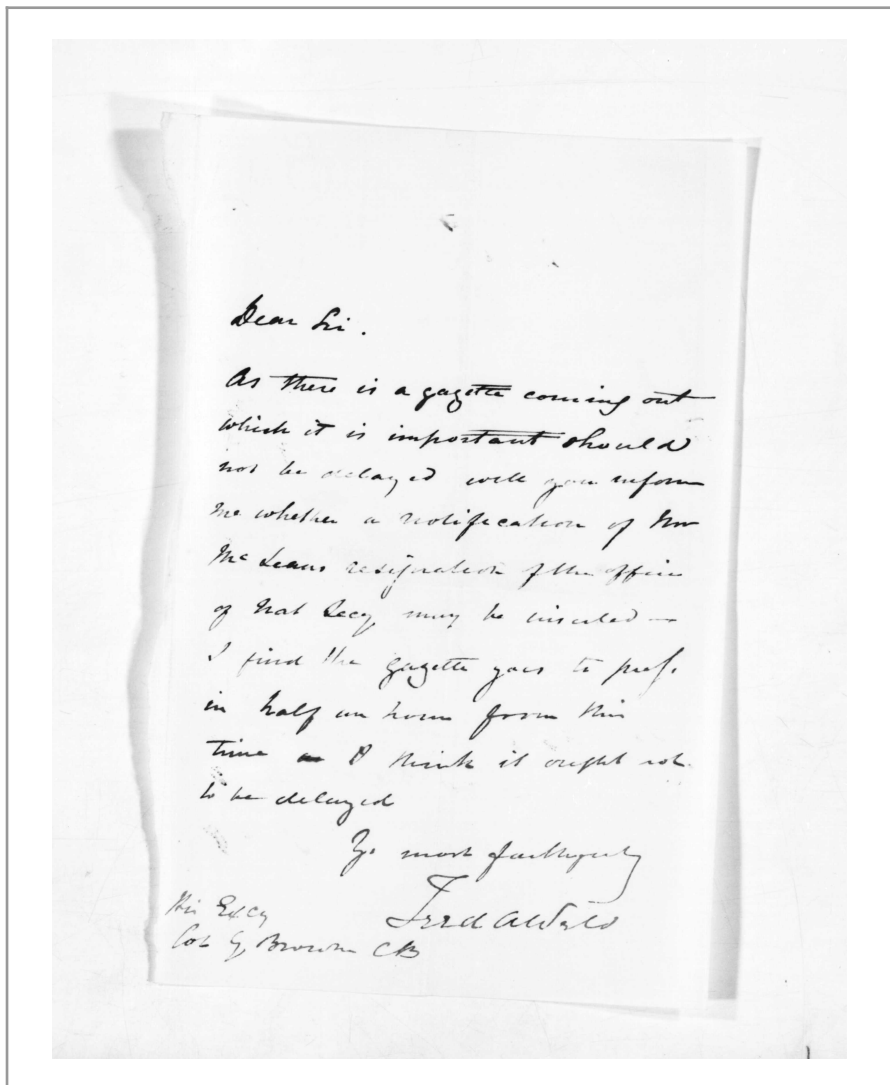 Dear Sir.
As there is a gazette coming out
which it is important should
not be delayed will you inform
me whether a notification of Mr
McLeans resignation of the office
of Nat Secy may be inserted —
I find the gazette goes to press
in half an hour from this
time & I think it ought not
to be delayed
Yrs most faithfully
Fred A Weld
His Excy
Col G. Browne CB